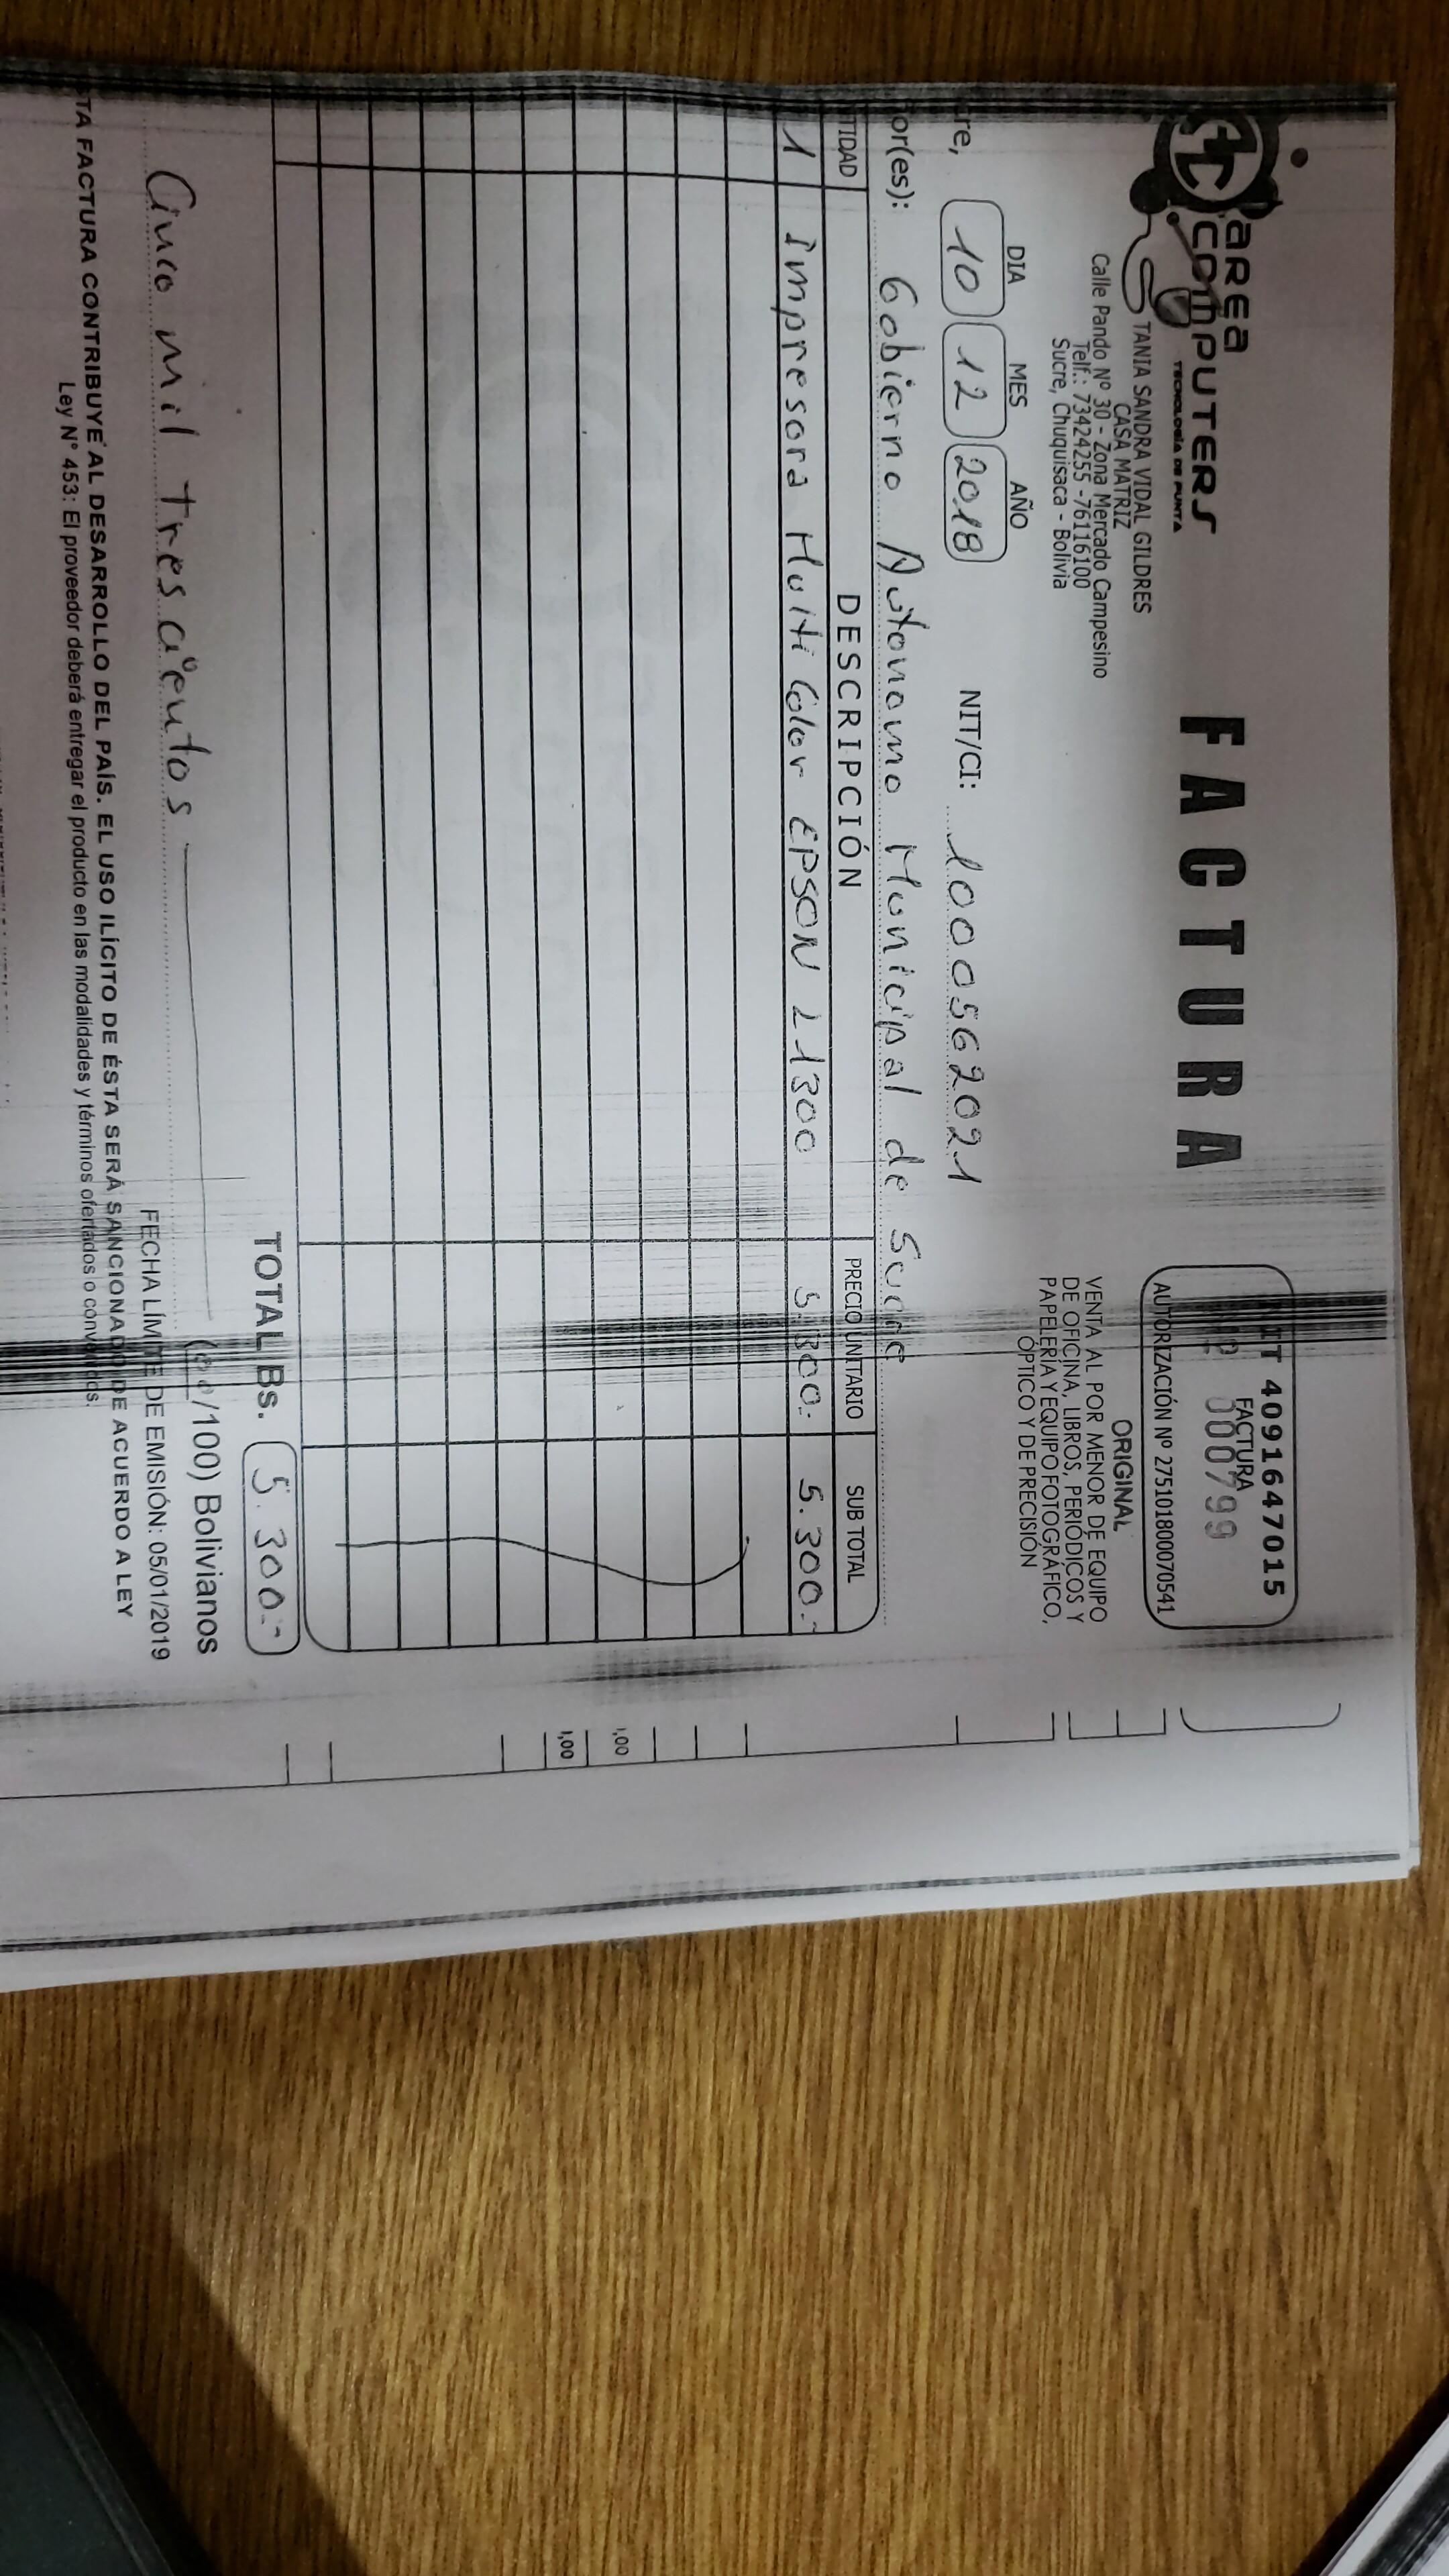 area
computers
TECNOLOGÍA DE PUNTA
TANIA SANDRA VIDAL GILDRES
CASA MATRIZ
Calle Pando Nº 30 - Zona Mercado Campesino
Telf.: 73424255 -76116100
Sucre, Chuquisaca - Bolivia
FACTURA
IT 4091647015
FACTURA
000799
AUTORIZACIÓN Nº 275101800070541
ORIGINAL
VENTA AL POR MENOR DE EQUIPO
DE OFICINA, LIBROS, PERIÓDICOS Y
PAPELERÍA Y EQUIPO FOTOGRÁFICO,
ÓPTICO Y DE PRECISIÓN
DIA MES AÑO
re, 10 12 2018 NIT/CI: 1000562021
or(es): Gobierno Autonomo Municipal de Sucre
TIDAD DESCRIPCIÓN PRECIO UNITARIO SUB TOTAL
1 Impresora Multi Color EPSON L1300 5.300.- 5.300.-
TOTAL Bs. 5.300.-
Cinco mil trescientos (00/100) Bolivianos
FECHA LÍMITE DE EMISIÓN: 05/01/2019
TA FACTURA CONTRIBUYE AL DESARROLLO DEL PAÍS. EL USO ILÍCITO DE ÉSTA SERÁ SANCIONADO DE ACUERDO A LEY
Ley N° 453: El proveedor deberá entregar el producto en las modalidades y términos ofertados o convenidos.
1,00
1,00